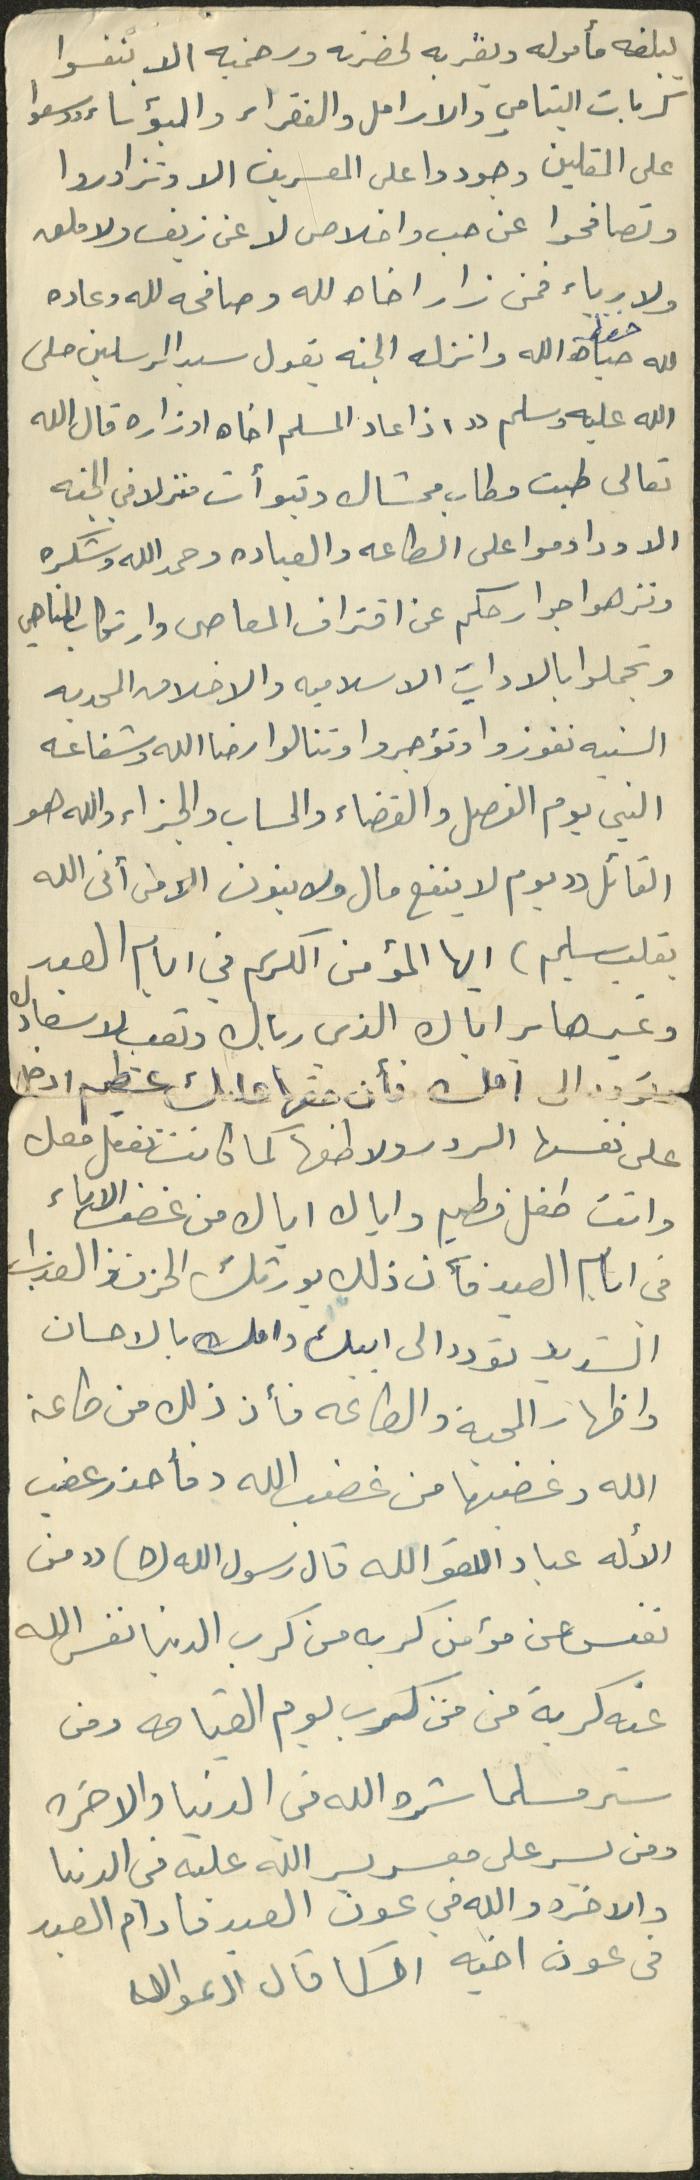 ليبلغه مأموله ويقربه لحضرته ورحمته الا نفسوا
كربات اليتامى والارامل والفقراء والبؤساء ووسعوا
على المقلين وجودوا على المعسرين الا وتزاوروا
وتصافحوا عن حب واخلاص لا عن زيف ولا ملق
ولا رياء فمن زار اخاه لله وصافحه لله وعاده
لله حباه الله وانزله الجنه يقول سيد المرسلين صلى
الله عليه وسلم ((اذا عاد المسلم اخاه او زاره قال الله
تعالى طبت وطاب ممشاك وتبوأت منزلا في الجنه
الا وداوموا على الطاعه والعباده وحمد الله وشكره
ونزهوا جوارحكم عن اقتراف المعاصى وارتكاب المناهي
وتجملوا بالاداب الاسلاميه والاخلاق المحمديه
السنيه تفوزوا وتؤجروا وتنالوا رضا الله وشفاعه
النبى يوم الفصل والقضاء والحساب والجزاء والله هو
القائل ((يوم لا ينفع مال ولا بنون الا من أتى الله
بقلب سليم) ايها المؤمن الكريم في ايام العيد
وغيرها بر اباك الذى رباك وتعب لاسعادك
الى امك فأن حقها عليك عظيم ادخل
على نفسها السرور ولاطفها كما كانت تفعل معك
وانت طفل فطيم واياك اياك من غضب الاباء
فى ايام العيد فأن ذلك يورثك الحزن والعذاب
الشديد تودد الى ابيك وامك بالاحسان
واظهار المحبة والطاعه فأن ذلك من طاعة
الله وغضبها من غضب الله فأحذر غضب
الأله عباد الله اتقوا الله قال رسول الله (ص) ((من
نفس عن مؤمن كربه من كرب الدنيا نفس الله
عنه كربة من من كرب يوم القيامه ومن
ستر مسلما ستره الله فى الدنيا والاخره
ومن يسر على معسر يسر الله عليه فى الدنيا
والاخره والله في عون العبد مادام العبد
فى عون اخيه قال ادعوا الله